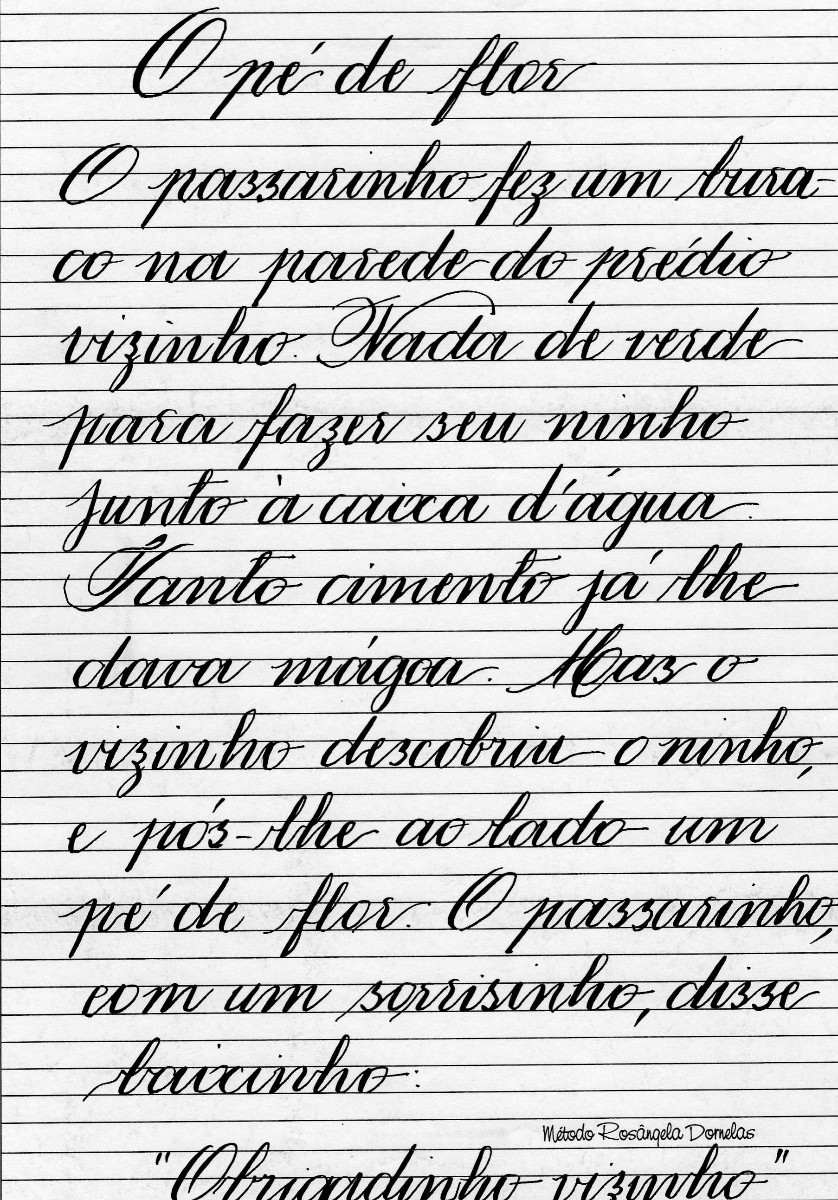 O pé de flor
O passarinho fez um bura-
co na parede do prédio
vizinho. Nada de verde
para fazer seu ninho
junto à caixa d'água.
Tanto cimento já lhe
dava mágoa. Mas o
vizinho descobriu o ninho,
e pós-lhe ao lado um
pé de flor. O passarinho,
com um sorrisinho, disse
baixinho:
Método Rosângela Dornelas
"Obrigadinho vizinho"